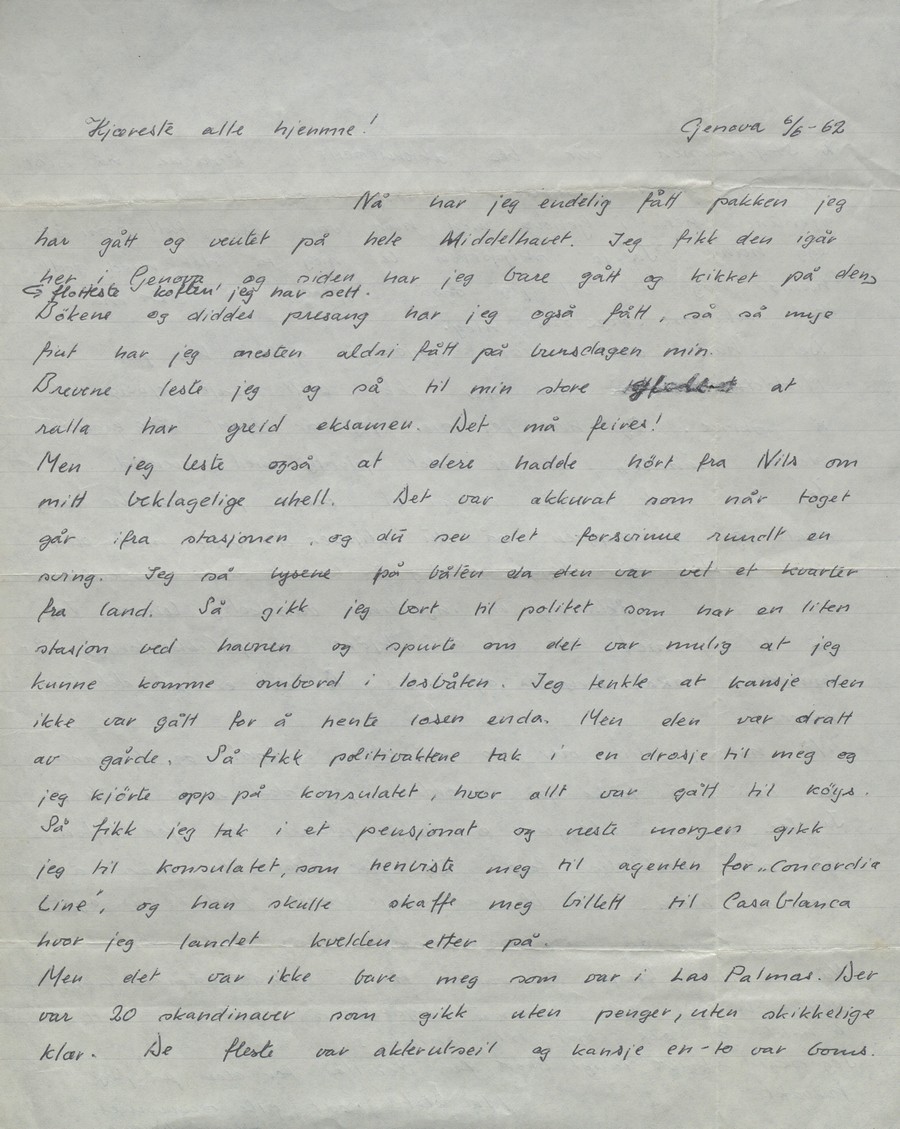 Kjæreste alle hjemme!
Genova 6/6-62
Nå har jeg endelig fått pakken jeg
har gått og ventet på hele Middelhavet. Jeg fikk den igår
her i Genova og siden har jeg bare gått og kikket på den
flotteste koften jeg har sett.
Bökene og diddes presang har jeg også fått, så så mye
fint har jeg nesten aldri fått på bursdagen min.
Brevene leste jeg og så til min store at
ralla har greid eksamen. Det må feires!
Men jeg leste også at dere hadde hört fra Nils om
mitt beklagelige uhell. Det var akkurat som når toget
går ifra stasjonen, og du ser det forsvinne rundt en
sving. Jeg så lysene på båten da den var vel et kvarter
fra land. Så gikk jeg bort til politet som har en liten
stasjon ved havnen og spurte om det var mulig at jeg
kunne komme ombord i losbåten. Jeg tenkte at kansje den
ikke var gått for å hente losen enda. Men den var dratt
av gårde. Så fikk politivaktene tak i en drosje til meg og
jeg kjörte opp på konsulatet, hvor allt var gått til köys.
Så fikk jeg tak i et pensjonat og neste morgen gikk
jeg til konsulatet, som henviste meg til agenten for „Concordia
Line", og han skulle skaffe meg billett til Casablanca
hvor jeg landet kvelden etter på.
Men det var ikke bare meg som var i Las Palmas. Der
var 20 skandinaver som gikk uten penger, uten skikkelige
klær. De fleste var akterutseil og kansje en-to var boms.